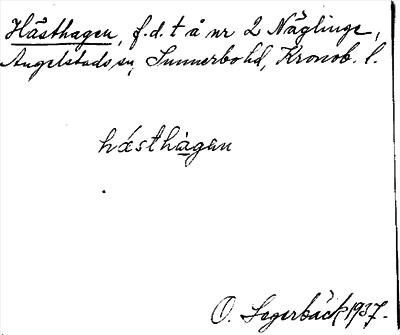 Hästhagen, f.d. t å nr 2 Näglinge,
Angelstads sn, Sunnerbo hd, Kronob. l.
hæsthàgan
O. Segerbäck 1937.